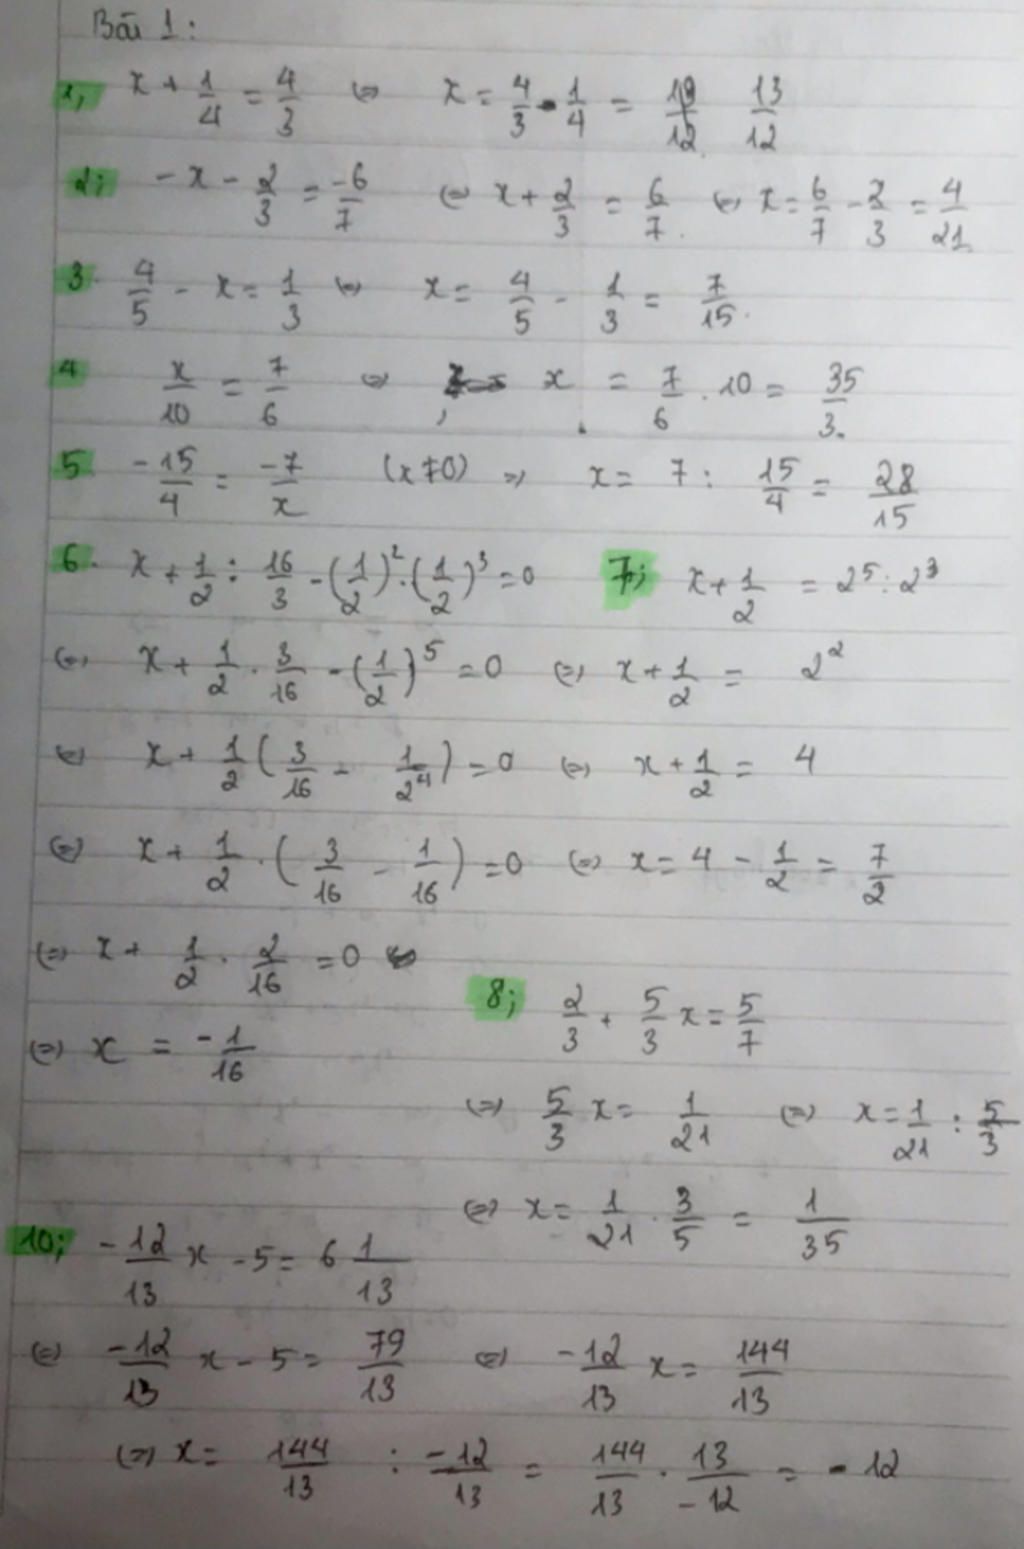 Bài 1:
1, x + 1/4 = 4/3 ⇔ x = 4/3 - 1/4 = 13/12
2; -x - 2/3 = -6/7 ⇔ x + 2/3 = 6/7 ⇔ x = 6/7 - 2/3 = 4/21
3. 4/5 - x = 1/3 ⇔ x = 4/5 - 1/3 = 7/15
4 x/10 = 7/6 ⇔ x = 7/6 . 10 = 35/3.
5 -15/4 = -7/x (x ≠ 0) ⇒ x = 7 : 15/4 = 28/15
6. x + 1/2 : 16/3 - (1/2)² . (1/2)³ = 0 7; x + 1/2 = 2⁵ : 2³
⇔ x + 1/2 . 3/16 - (1/2)⁵ = 0 ⇔ x + 1/2 = 2²
⇔ x + 1/2 (3/16 - 1/2⁴) = 0 ⇔ x + 1/2 = 4
⇔ x + 1/2 . (3/16 - 1/16) = 0 ⇔ x = 4 - 1/2 = 7/2
⇔ x + 1/2 . 2/16 = 0
⇔ x = -1/16
8; 2/3 + 5/3 x = 5/7
⇔ 5/3 x = 1/21 ⇔ x = 1/21 : 5/3
⇔ x = 1/21 . 3/5 = 1/35
10; -12/13 x - 5 = 6 1/13
⇔ -12/13 x - 5 = 79/13 ⇔ -12/13 x = 144/13
⇔ x = 144/13 : -12/13 = 144/13 . 13/-12 = -12